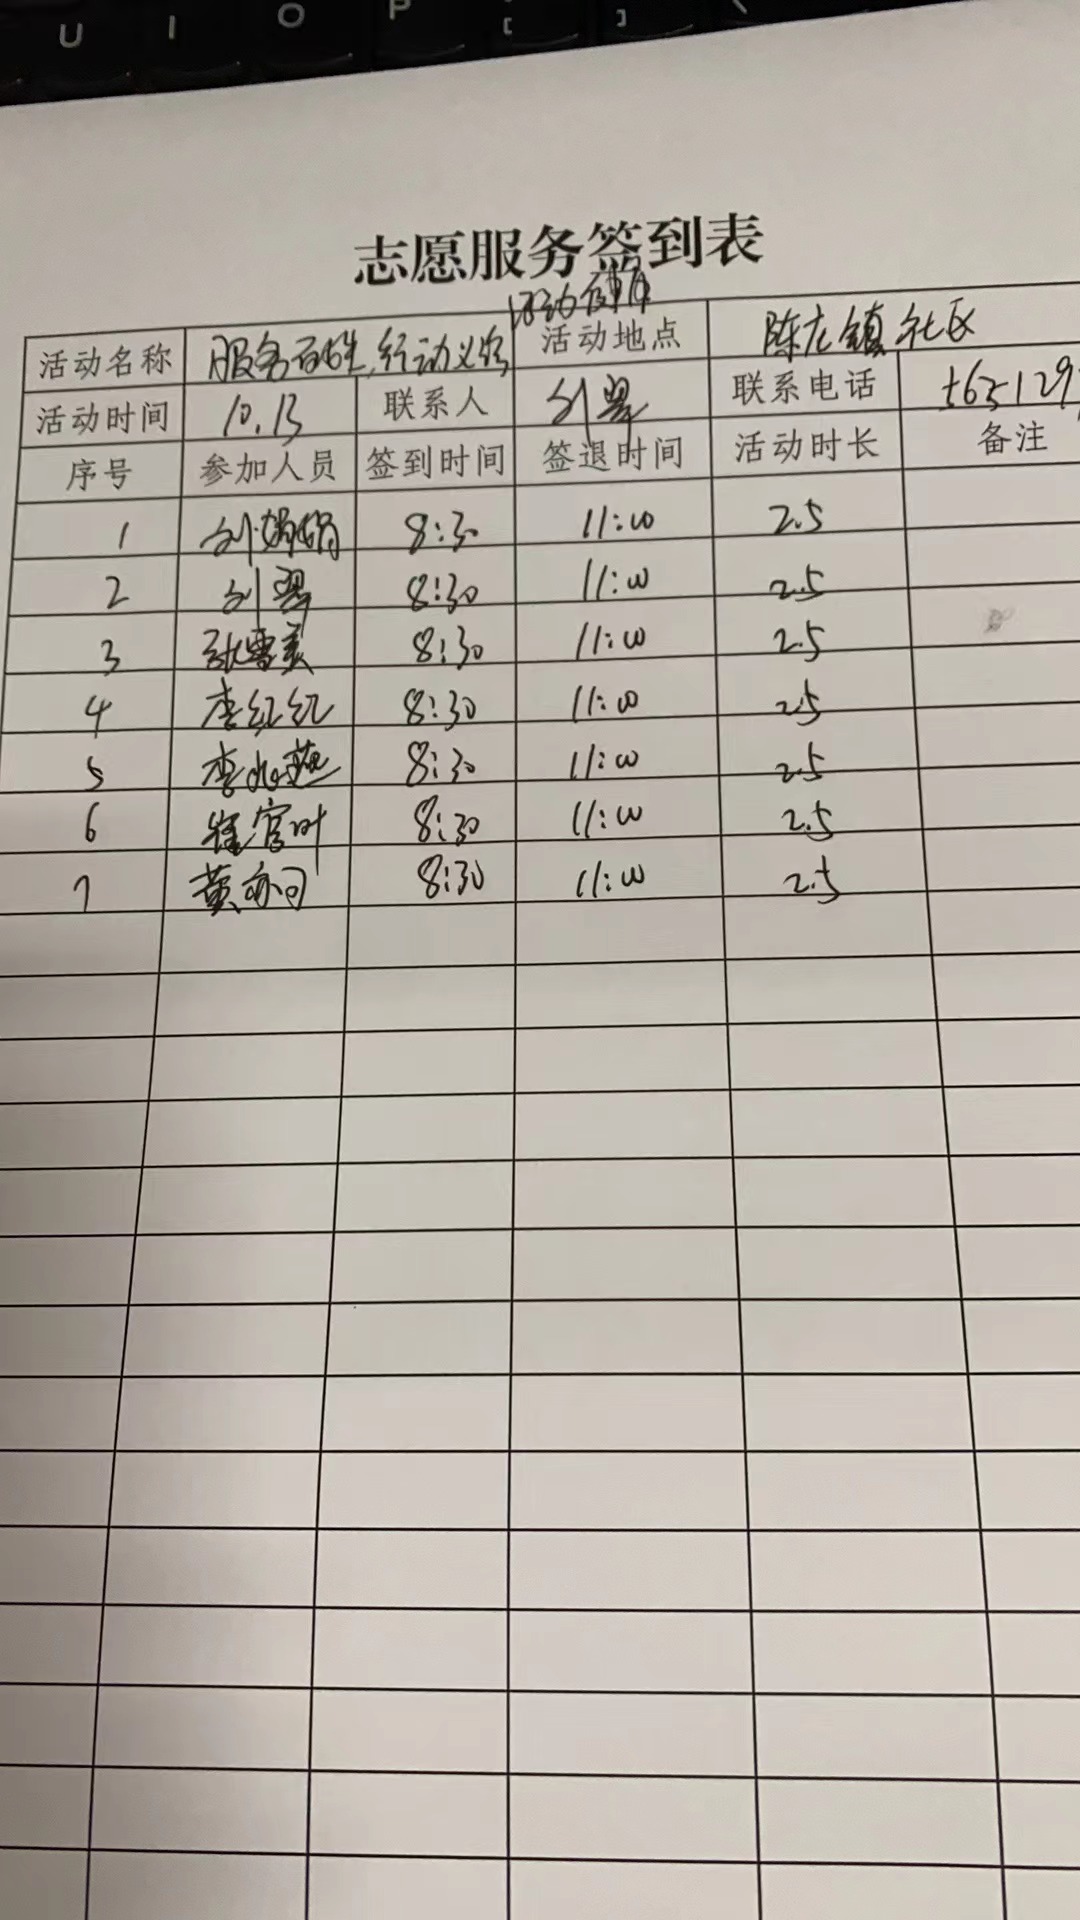 U I O P [ ] \
志愿服务签到表
活动名称 服务百姓,行动 活动地点 陈左镇社区
活动时间 10.13 联系人 刘翠 联系电话
序号 参加人员 签到时间 签退时间 活动时长 备注
1 刘娟娟 8:30 11:00 2.5
2 刘翠 8:30 11:00 2.5
3 张雪美 8:30 11:00 2.5
4 李红红 8:30 11:00 2.5
5 李 燕 8:30 11:00 2.5
6 崔官叶 8:30 11:00 2.5
7 黄 8:30 11:00 2.5